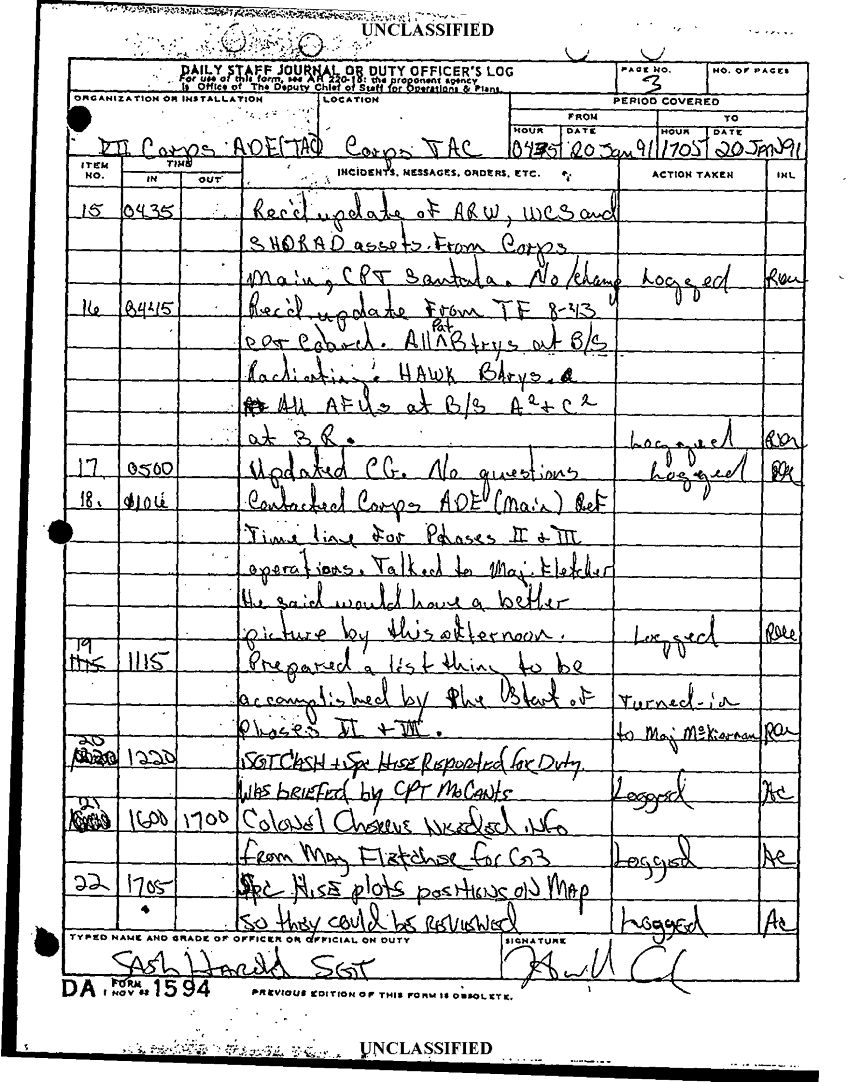 UNCLASSIFIED
DAILY STAFF JOURNAL OR DUTY OFFICER'S LOG
For use of this form, see AR 220-15: the proponent agency
is Office of The Deputy Chief of Staff for Operations & Plans.
PAGE NO.
3
NO. OF PAGES
ORGANIZATION OR INSTALLATION
LOCATION
PERIOD COVERED
FROM
TO
HOUR
DATE
HOUR
DATE
VII Corps ADE(TAC) Corps TAC 0435 20 Jan 91 1705 20 JAN 91
ITEM NO.
TIME
IN
OUT
INCIDENTS, MESSAGES, ORDERS, ETC.
ACTION TAKEN
INL
15 0435 Rec'd update of ARW, WCS and
SHORAD assets. From Corps
Main, CPT Santala. No/change Logged
16 0445 Rec'd update From TF 8-43
All Pat Btrys at B/S
Radiating. HAWK Btrys.
All AFUs at B/S A2 + C2
at 3 R. Logged
17 0500 Updated CG. No questions Logged
18. Contacted Corps ADE (Main) Ref
Time line For Phases II & III
operations. Talked to Maj. Fletcher
He said would have a better
picture by this afternoon. Logged
19
1115 1115 Prepared a list thing to be
accomplished by the Start of Turned-in
Phases II + III. to Maj McKiernan
20
1220 SGT CASH + Spc HISE Reported for Duty
WAS bRIEFEd by CPT McCants Logged AC
21
1600 1700 Colonel Needed info
from Maj for G3 Logged AC
22 1705 Spc HISE plots positions on MAP
so they could be REVIEWED Logged AC
TYPED NAME AND GRADE OF OFFICER OR OFFICIAL ON DUTY
SIGNATURE
Harold SGT
DA FORM 1 NOV 62 1594
PREVIOUS EDITION OF THIS FORM IS OBSOLETE.
UNCLASSIFIED